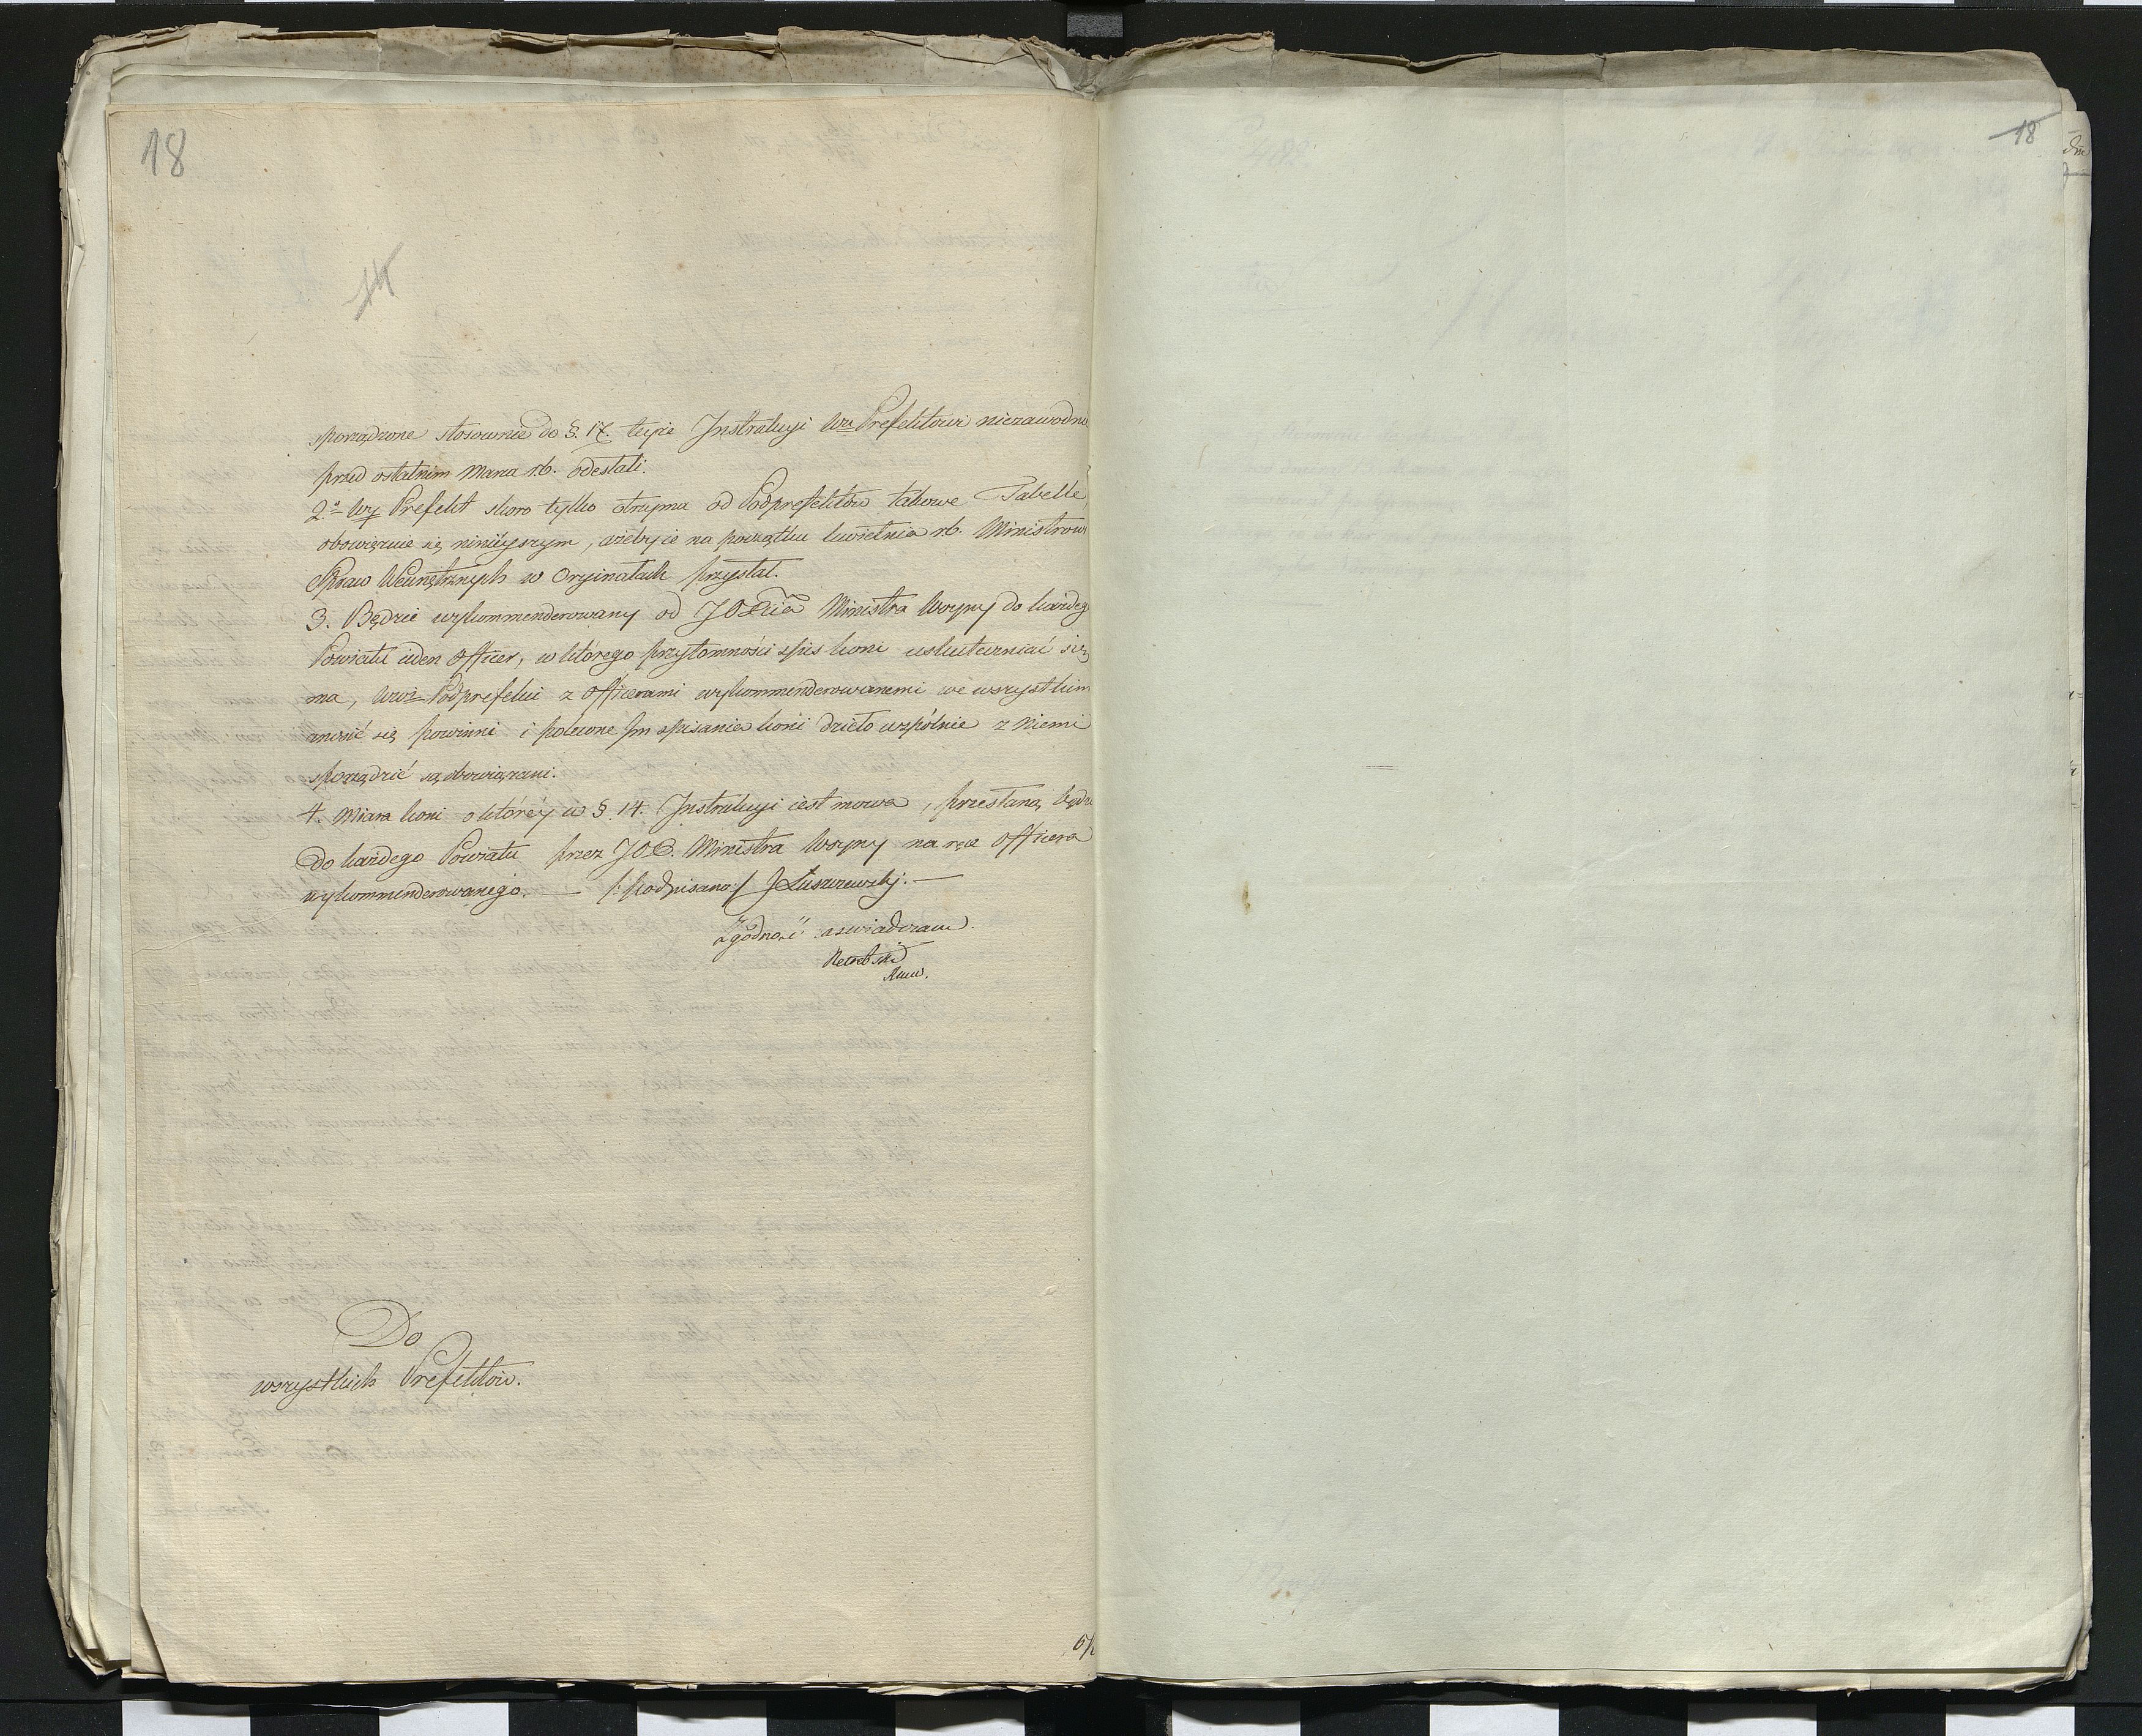 18
14
sporządzone stosownie do §. 17. teyże Instrukcyi Wu Prefektowi niezawodnie
przed ostatnim Marca r.b. odesłali.
2.º Wy Prefekt skoro tylko otrzyma od Podprefektów takowe Tabelle,
obowięzuie się ninieyszym, ażeby ie na początku kwietnia r.b. Ministrowi
Spraw Wewnętrznych w Oryinałach przysłał.
3. Będzie wykommenderowany od JO Xcia Ministra Woyny do każdego
Powiatu ieden Officer, w którego przytomności spis koni uskuteczniać się
ma, Wwi Podprefekci z Officerami wykommenderowanemi we wszystkim
znosić się powinni i polecone Im spisanie koni dzieło wspólnie z niemi
sporządzić są obowiązani.
4. Miara koni o któréy w §. 14. Instrukcyi iest mowa, przesłaną będzie
do każdego Powiatu przez JOX. Ministra Woyny na ręce Officera
wykommenderowanego. — /:podpisano:/ J Łuszczewskj. —
Zgodność zaświadczam.
Do
wszystkich Prefektów.
18